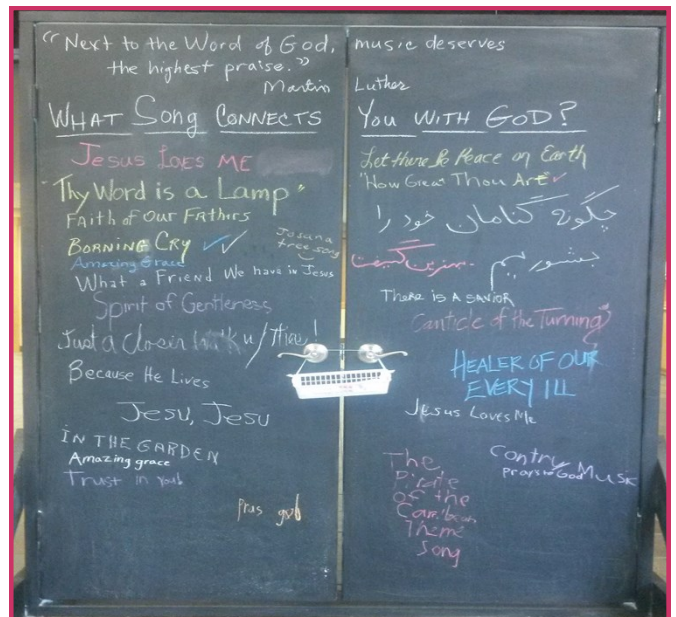 "Next to the Word of God, music deserves
the highest praise."
Martin Luther
WHAT Song CONNECTS You WITH GOD?
Jesus Loves ME
Thy Word is a Lamp"
FAITH of OUR FATHERS
BORNING CRY
Amazing Grace
What a Friend We have in Jesus
Spirit of Gentleness
Just a closer w/ Thee!
Because He Lives
Jesu, Jesu
IN THE GARDEN
Amazing grace
Trust in
Let there Be Peace on Earth
"How Great Thou Art"
چگونه گناهان خود را
بشوریم
There is A SAVIOR
Canticle of the Turning
HEALER OF OUR
EVERY ILL
Jesus Loves Me
The
Pirate
of the
Caribbean
Theme
Song
Contry Music